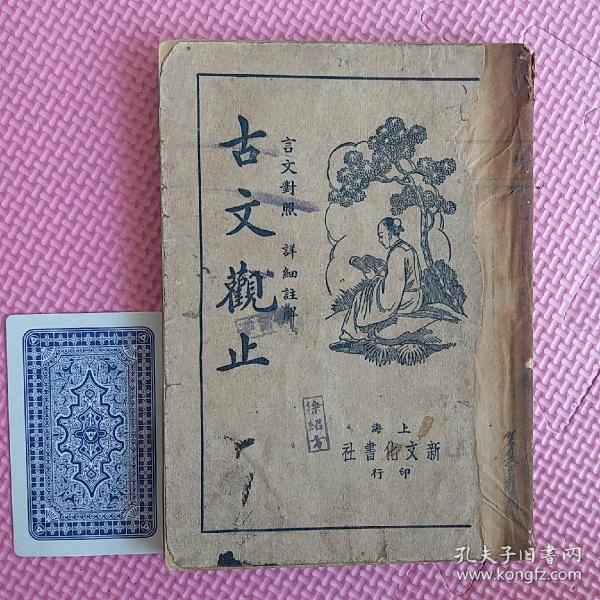 古文觀止
言文對照 詳細註解
上海
新文化書社
印行
徐紹
孔夫子旧书网
www.kongfz.com